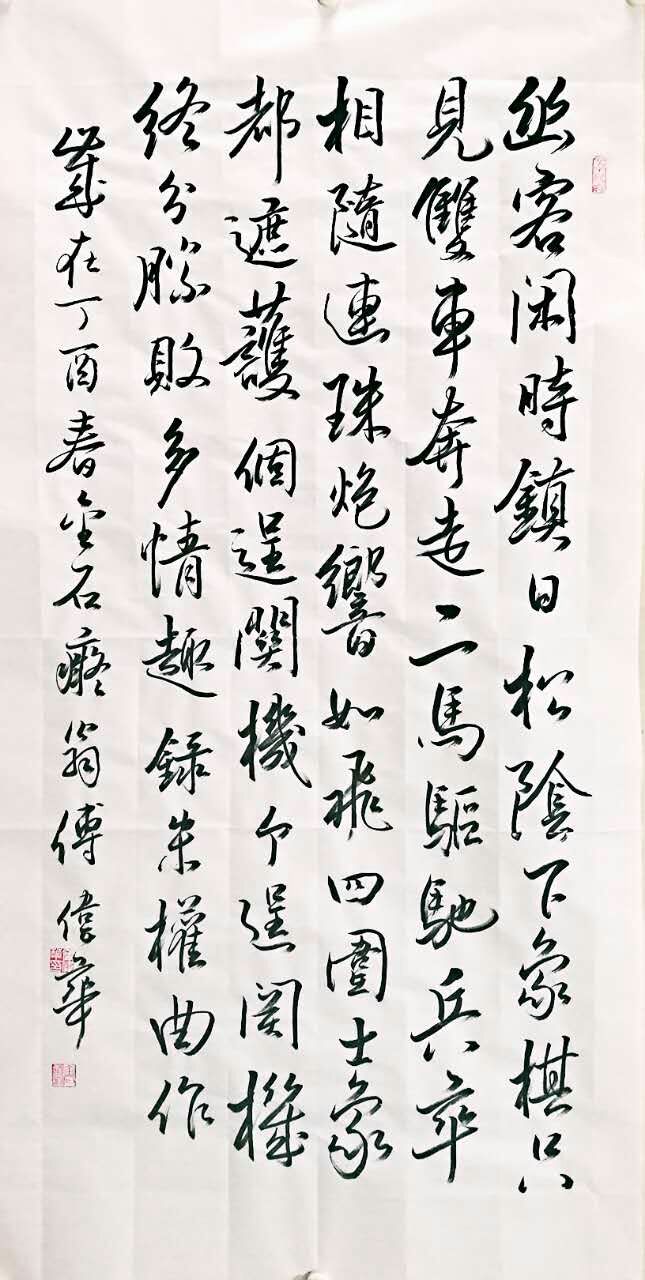 幽客闲時鎮日松陰下象棋只
見雙車奔走二馬驅馳兵卒
相隨連珠炮響如飛四圍士象
都遮護個逞関機个逞関機
終分勝敗多情趣録朱權曲作
歲在丁酉春金石癡翁傅偉華